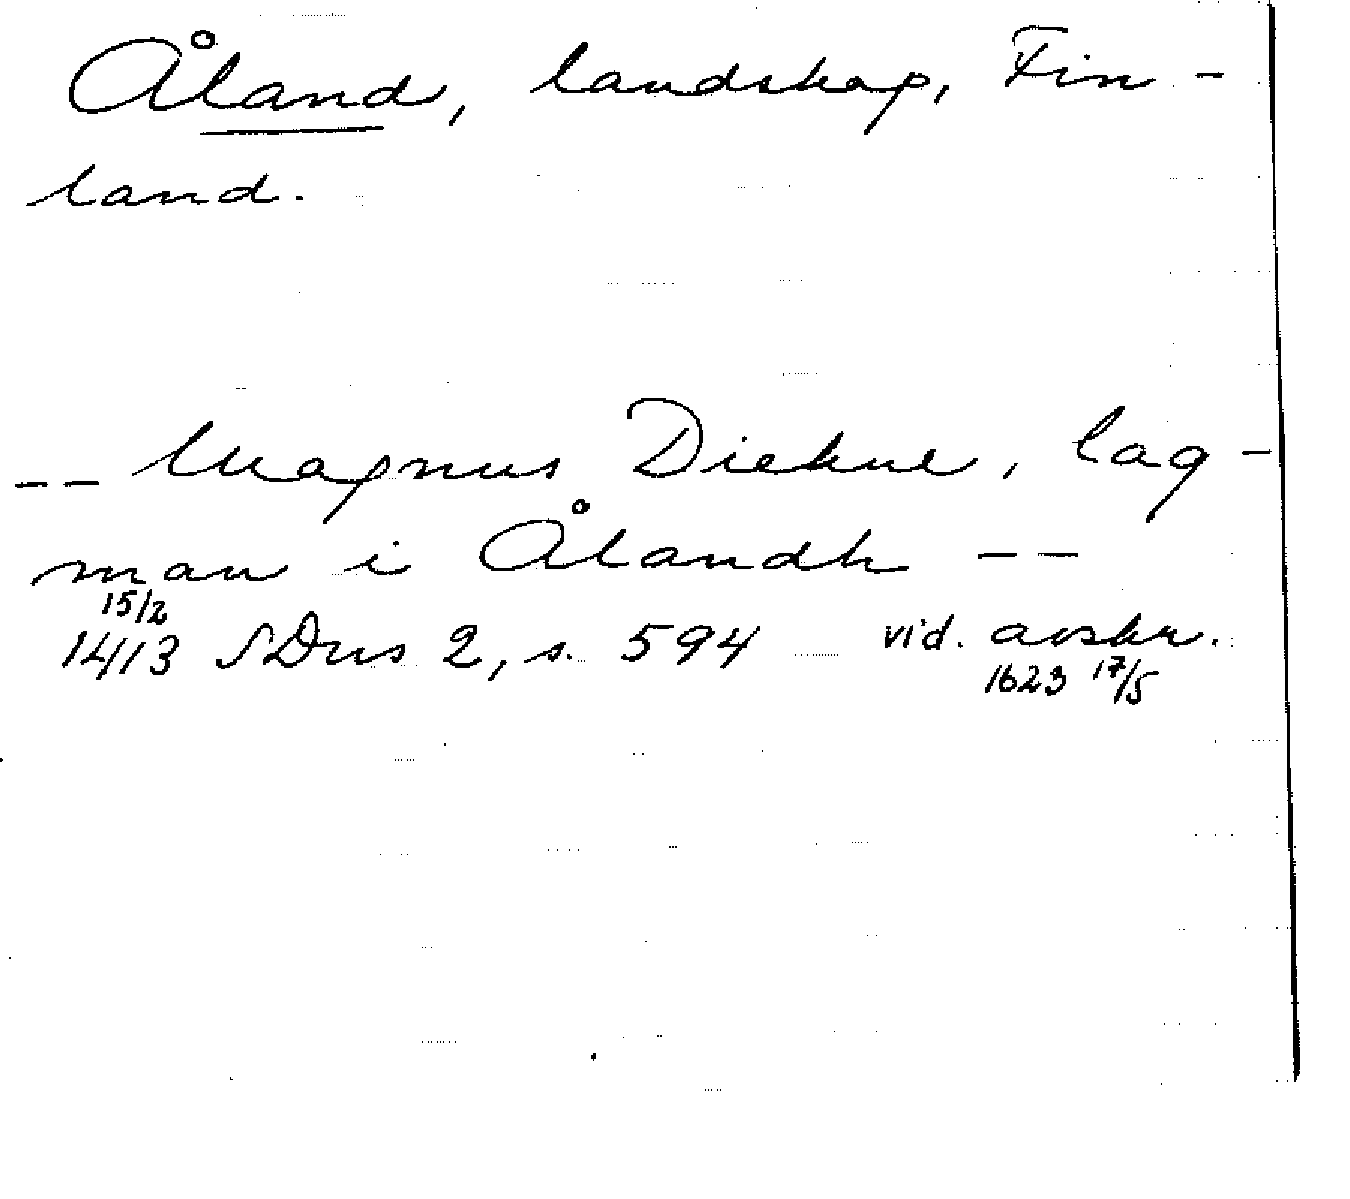 Åland, landskap, Fin-
land.
-- Magnus Diekne, lag-
man i Ålandh --
15/2
1413 SDns 2, s. 594 vid. avskr.
1623 17/5